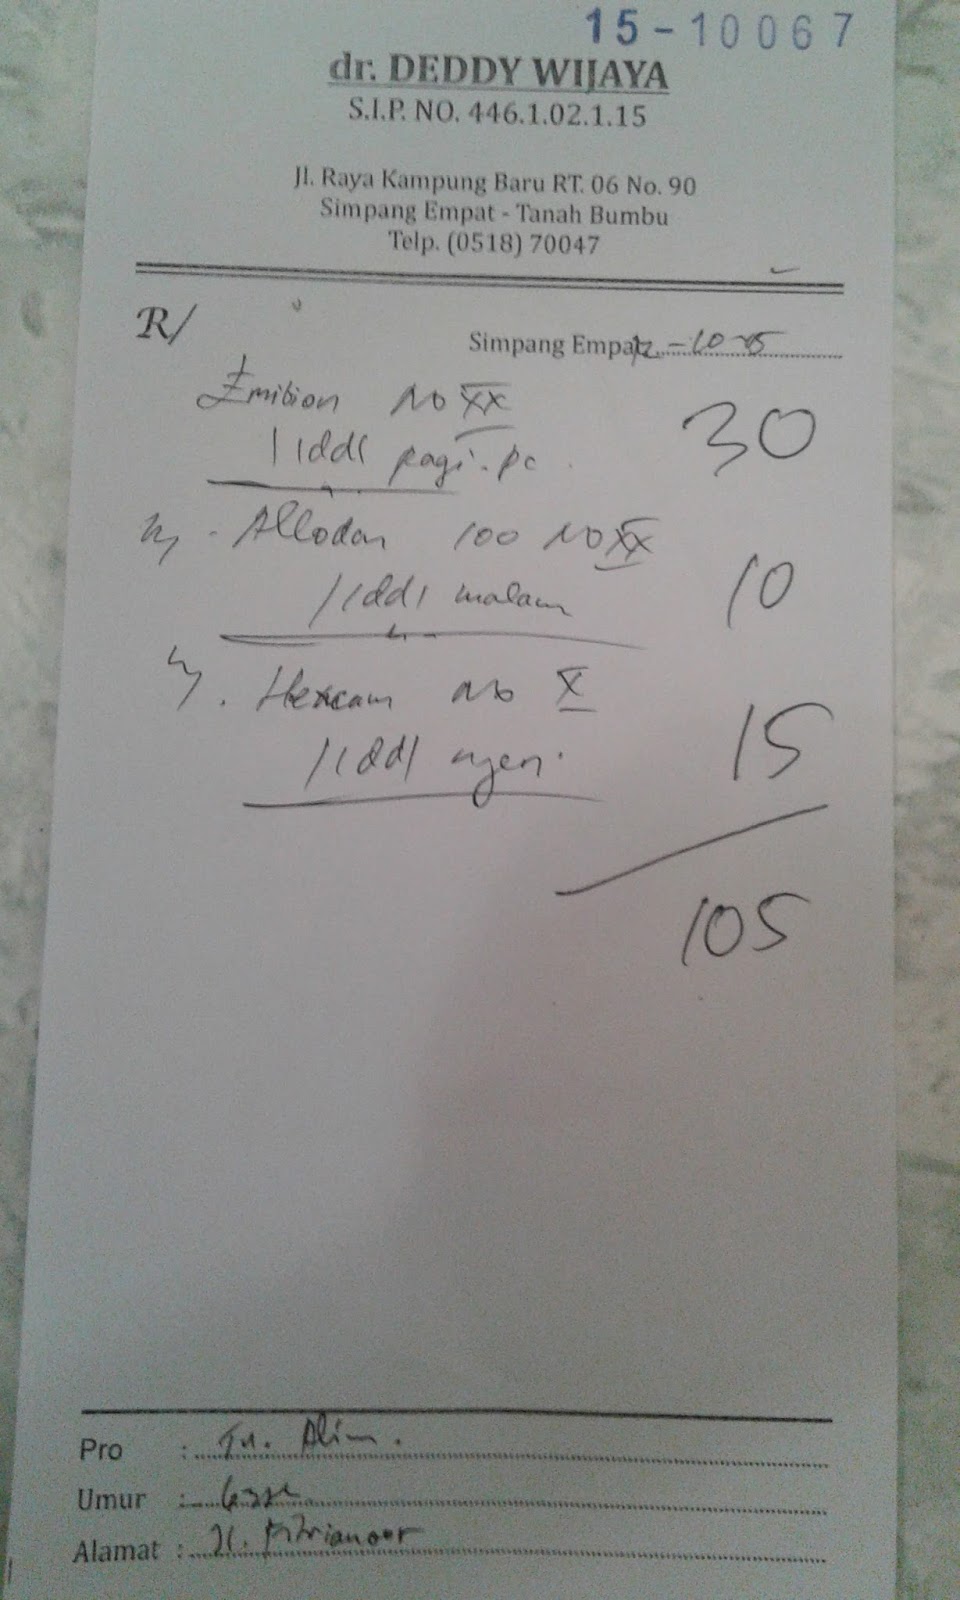 15-10067
dr. DEDDY WIJAYA
S.I.P. NO. 446.1.02.1.15
Jl. Raya Kampung Baru RT. 06 No. 90
Simpang Empat - Tanah Bumbu
Telp. (0518) 70047
R/
Simpang Empat, -10-15
Emibion No XX 30
1 1dd1 pagi. pc
Allodan 100 No XX 10
1 1dd1 malam
No X 15
1 1dd1 nyeri
105
Pro : Tn. Alim.
Umur :
Alamat : Jl. Fitrianoor